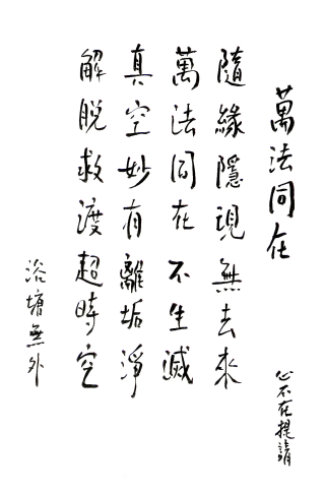 萬法同在
心不在提請
隨緣隱現無去來
萬法同在不生滅
真空妙有離垢淨
解脫救渡超時空
浴塘無外